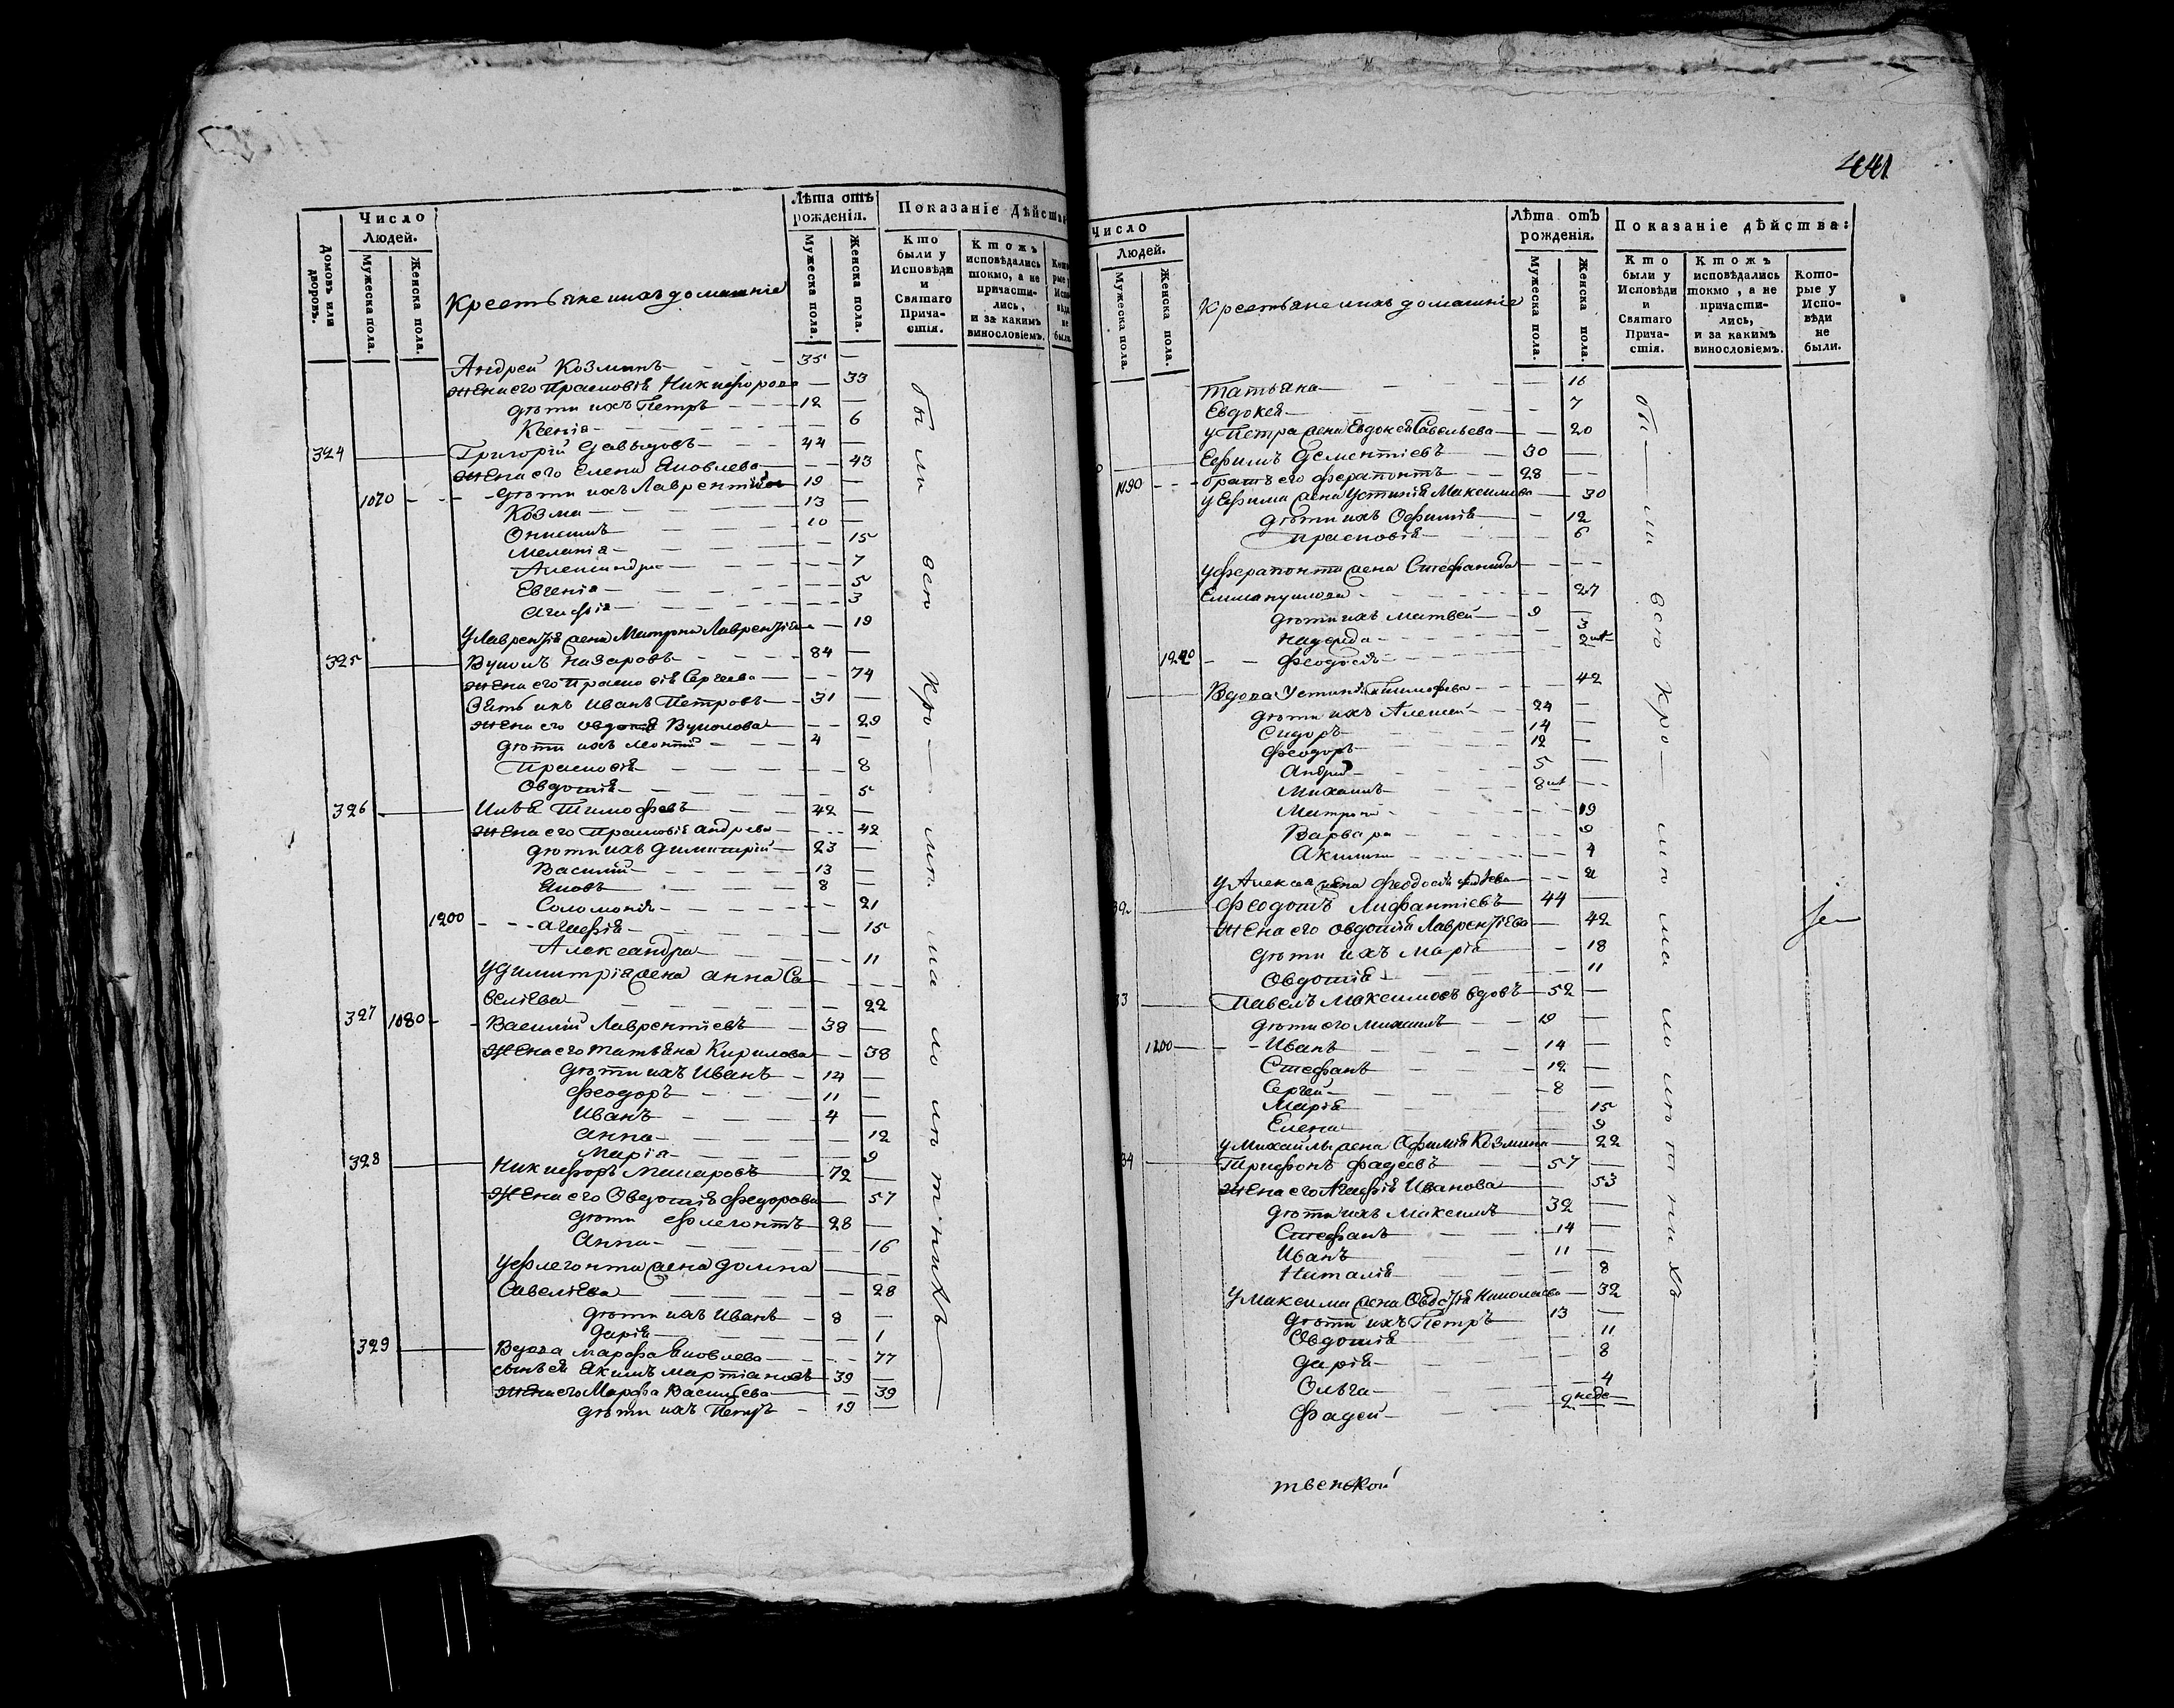 441
Число Людей.
Лѣта отъ рожденія.
Показаніе дѣйства
Домовъ или дворовъ.
Мужеска пола.
Женска пола.
Крестьяне и ихъ домашніе
Мужеска пола.
Женска пола.
Кто были у Исповѣди и Святаго Причастія.
Ктожъ исповѣдались токмо, а не причастились, и за какимъ винословіемъ.
Андрей Козминъ 35
жена его Праковія Никифорова 33
дѣти ихъ Петръ 12
Ксенія 6
324 Григорій Давыдовъ 44
жена его Елена Яковлева 43
1070 дѣти ихъ Лаврентій 19
Козма 13
Онисимъ 10
Меланія 15
Александра 7
Евгенія 5
Агафія 3
У Лаврентія жена Матрона Лаврентіева 19
325 Вуколъ Назаровъ 84
жена его Прасковія Сергеева 74
Зять ихъ Иванъ Петровъ 31
жена его Овдотія Вуколова 29
дѣти ихъ Леонтій 4
Прасковія 8
Овдотія 5
326 Илья Тимофеевъ 42
жена его Прасковія Андреева 42
дѣти ихъ Димитрій 23
Василій 13
Яковъ 8
Соломонія 21
1200 Агафія 15
Александра 11
У Димитрія жена Анна Са
веліева 22
327 1080 Василій Лаврентіевъ 38
жена его Татьяна Кирилова 38
дѣти ихъ Иванъ 14
Феодоръ 11
Иванъ 4
Анна 12
Марія 9
328 Никифоръ Макаровъ 72
жена его Овдотія Федорова 57
дѣти Флегонтъ 28
Анна 16
У Флегонта жена Домна
Савеліева 28
дѣти ихъ Иванъ 8
Дарія 1
329 Вдова Марфа Яковлева 77
сынъ ея Якимъ Мартіановъ 39
жена его Марфа Васильева 39
дѣти ихъ Петръ 19
были всю кро ма ло лѣтнихъ
Число Людей.
Лѣта отъ рожденія.
Показаніе дѣйства:
Мужеска пола.
Женска пола.
Крестьяне и ихъ домашніе
Мужеска пола.
Женска пола.
Кто были у Исповѣди и Святаго Причастія.
Ктожъ исповѣдались токмо, а не причастились, и за какимъ винословіемъ.
Которые у Исповѣди не были.
Татьяна 16
Евдокея 7
У Петра жена Евдокея Савельева 20
Ефимъ Дементіевъ 30
1090 братъ его Ферапонтъ 28
У Ефима жена Устинія Максимова 30
дѣти ихъ Офимія 12
Прасковія 6
У Ферапонта жена Стефанида
Еммануилова 27
дѣти ихъ Матвей 9
Надежда 3
Феодосія
Вдова Устинія Тимофева 42
дѣти ихъ Алексей 24
Сидоръ 14
Феодоръ 12
Андрей 5
Михаилъ
Матрона 19
Варвара 9
Акилина 4
У Алексея жена Феодосія
Феодотъ Лифантіевъ 44
жена его Овдотія Лаврентіева 42
дѣти ихъ Марія 18
Овдотія 11
33 Павелъ Максимовъ вдовъ 52
дѣти его Михаилъ 19
1100 Иванъ 14
Стефанъ 12
Сергей 8
Марія 15
Елена 9
У Михайлы жена Офимія Козмина 22
34 Трифонъ Фадеевъ 57
жена его Агафія Иванова 53
дѣти ихъ Максимъ 32
Стефанъ 14
Иванъ 11
Наталія 8
У Максима жена Овдотія Николаева 32
дѣти ихъ Петръ 13
Овдотія 11
Дарія 8
Ольга 4
Фадей 2 неде
были всю кро ма ло лѣтнихъ
твенской